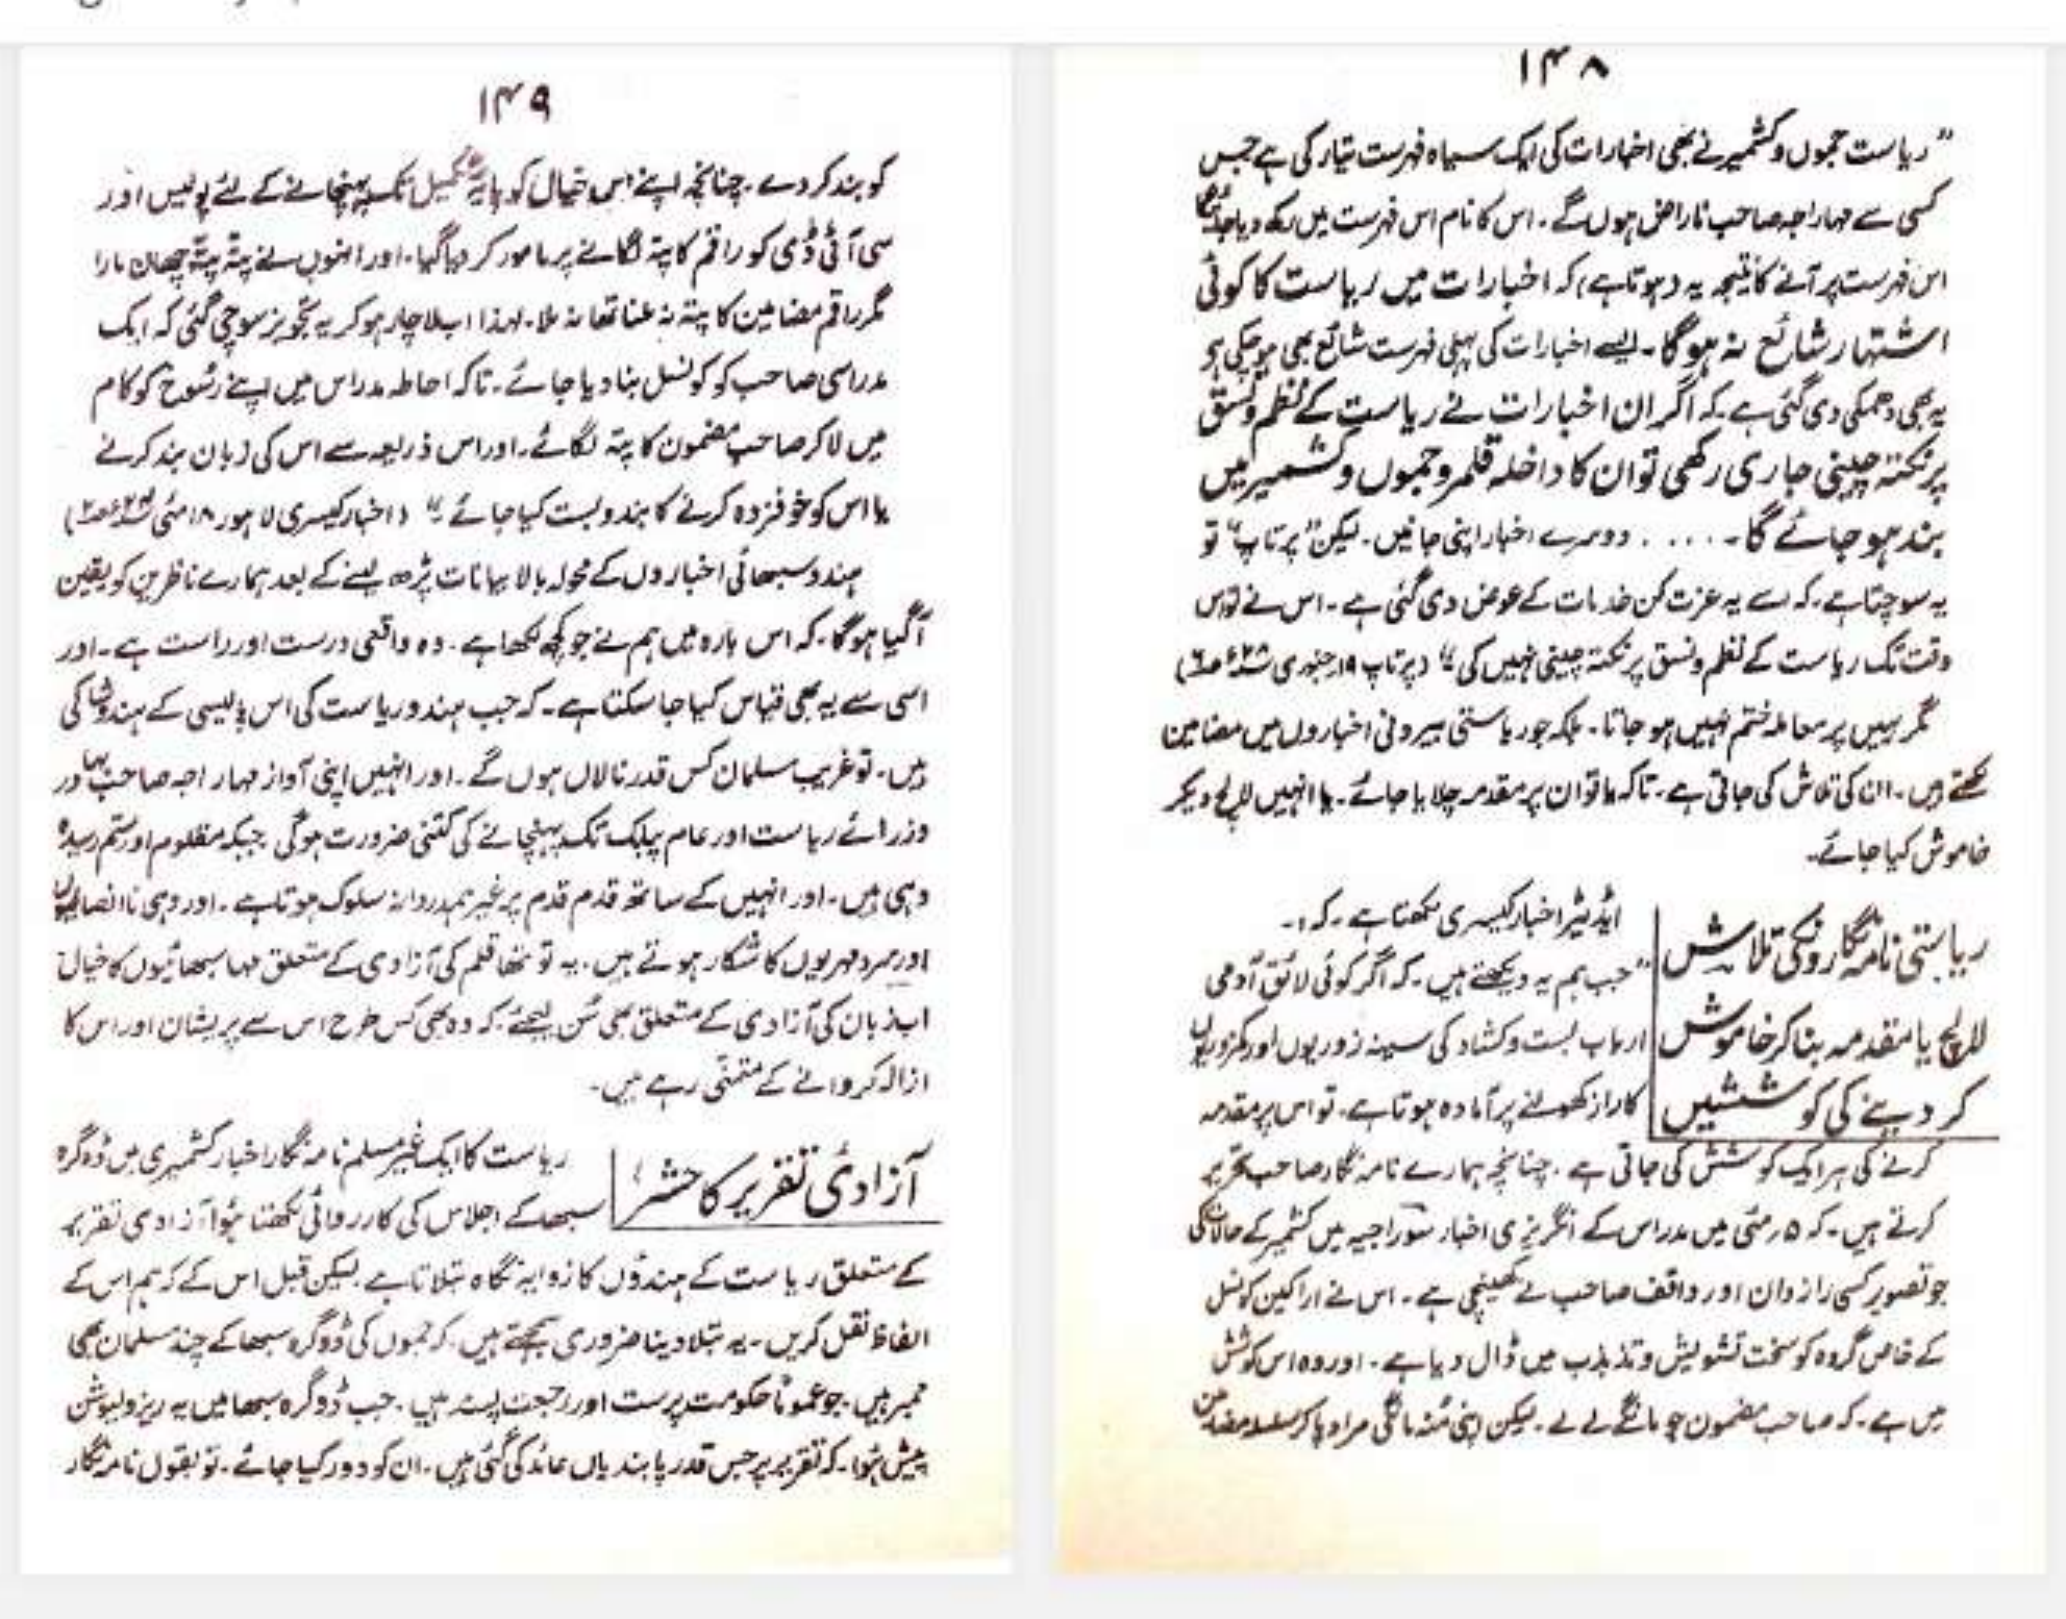 ۱۴۸
"ریاست جموں و کشمیر نے بھی اخبارات کی ایک سیاہ فہرست تیار کی ہے جس
کسی سے مہاراجہ صاحب ناراض ہوں گے۔ اس کا نام اس فہرست میں رکھ دیا جائیگا
اس فہرست پر آنے کا نتیجہ یہ (ہوتا ہے) کہ اخبارات میں ریاست کا کوئی
اشتہار شائع نہ ہوگا۔ ایسے اخبارات کی پہلی فہرست شائع بھی ہو چکی ہے
یہ بھی دھمکی دی گئی ہے۔ کہ اگر ان اخبارات نے ریاست کے نظم و نسق
پر نکتہ چینی جاری رکھی تو ان کا داخلہ قلمرو جموں و کشمیر میں
بند ہو جائے گا۔ .... دوسرے اخبار اپنی جانیں۔ لیکن "پرتاپ" تو
یہ سوچتا ہے۔ کہ اسے یہ عزت کن خدمات کے عوض دی گئی ہے۔ اس نے تو اس
وقت تک ریاست کے نظم و نسق پر نکتہ چینی نہیں کی" (پرتاپ ۱۹ جنوری
مگر یہیں پر معاملہ ختم نہیں ہو جاتا۔ بلکہ جو ریاستی بیرونی اخباروں میں مضامین
لکھتے ہیں۔ ان کی تلاش کی جاتی ہے۔ تاکہ یا تو ان پر مقدمہ چلایا جائے۔ یا انہیں لالچ دیکر
خاموش کیا جائے۔
ریاستی نامہ نگارونکی تلاش
لالچ یا مقدمہ بنا کر خاموش
کر دینے کی کوششیں
ایڈیٹر اخبار کیسری لکھتا ہے۔ کہ:۔
"جب ہم یہ دیکھتے ہیں۔ کہ اگر کوئی لائق آدمی
ارباب بست و کشاد کی سینہ زوریوں اور کمزوریوں
کا راز کھولنے پر آمادہ ہوتا ہے۔ تو اس پر مقدمہ
کرنے کی ہر ایک کوشش کی جاتی ہے۔ چنانچہ ہمارے نامہ نگار صاحب تحریر
کرتے ہیں۔ کہ ۵ رمئی میں مدراس کے انگریزی اخبار سوراجیہ میں کشمیر کے حالات کی
جو تصویر کسی رازدان اور واقف صاحب نے کھینچی ہے۔ اس نے اراکین کونسل
کے خاص گروہ کو سخت تشویش و تذبذب میں ڈال دیا ہے۔ اور وہ اس کوشش
میں ہے۔ کہ صاحب مضمون جو مانگے لے لے۔ لیکن اپنی منہ مانگی مراد پا کر سلسلہ مضامین
۱۴۹
کو بند کر دے۔ چنانچہ اپنے اس خیال کو پایۂ تکمیل تک پہنچانے کے لئے پولیس اور
سی آئی ڈی کو راقم کا پتہ لگانے پر مامور کر دیا گیا۔ اور انہوں نے پتہ پتہ چھان مارا
مگر راقم مضامین کا پتہ نہ ملنا تھا نہ ملا۔ لہذا اب لاچار ہو کر یہ تجویز سوچی گئی کہ ایک
مدراسی صاحب کو کونسل بنا دیا جائے۔ تاکہ احاطہ مدراس میں اپنے رسوخ کو کام
میں لا کر صاحب مضمون کا پتہ لگائے۔ اور اس ذریعہ سے اس کی زبان بند کرنے
یا اس کو خوفزدہ کرنے کا بندوبست کیا جائے"۔ (اخبار کیسری لاہور ۱۸ مئی
ہندو سبھائی اخباروں کے محولہ بالا بیانات پڑھ لینے کے بعد ہمارے ناظرین کو یقین
آ گیا ہوگا۔ کہ اس بارہ میں ہم نے جو کچھ لکھا ہے۔ وہ واقعی درست اور راست ہے۔ اور
اسی سے یہ بھی قیاس کیا جا سکتا ہے۔ کہ جب ہندو ریاست کی اس پالیسی کے ہندو شاکی
ہیں۔ تو غریب مسلمان کس قدر نالاں ہوں گے۔ اور انہیں اپنی آواز مہاراجہ صاحب بہادر
وزرائے ریاست اور عام پبلک تک پہنچانے کی کتنی ضرورت ہوگی جبکہ مظلوم اور ستم رسیدہ
وہی ہیں۔ اور انہیں کے ساتھ قدم قدم پر غیر ہمدردانہ سلوک ہوتا ہے۔ اور وہی ناانصافیوں
اور سرد مہریوں کا شکار ہوتے ہیں۔ یہ تو تھا قلم کی آزادی کے متعلق مہاسبھائیوں کا خیال
اب زبان کی آزادی کے متعلق بھی سُن لیجئے۔ کہ وہ بھی کس طرح اس سے پریشان اور اس کا
ازالہ کروانے کے متمنی رہے ہیں۔
آزادیٔ تقریر کا حشر
ریاست کا ایک غیر مسلم نامہ نگار اخبار کشمیری میں ڈوگرہ
سبھا کے اجلاس کی کارروائی لکھتا ہوا آزادی تقریر
کے متعلق ریاست کے ہندوں کا زوایہ نگاہ بتلاتا ہے۔ لیکن قبل اس کے کہ ہم اس کے
الفاظ نقل کریں۔ یہ بتلا دینا ضروری سمجھتے ہیں۔ کہ جموں کی ڈوگرہ سبھا کے چند مسلمان بھی
ممبر ہیں۔ جو عموماً حکومت پرست اور رجعت پسند ہیں۔ جب ڈوگرہ سبھا میں یہ ریزولیوشن
پیش ہوا۔ کہ تقریر پر جس قدر پابندیاں عائد کی گئی ہیں۔ ان کو دور کیا جائے۔ تو بقول نامہ نگار